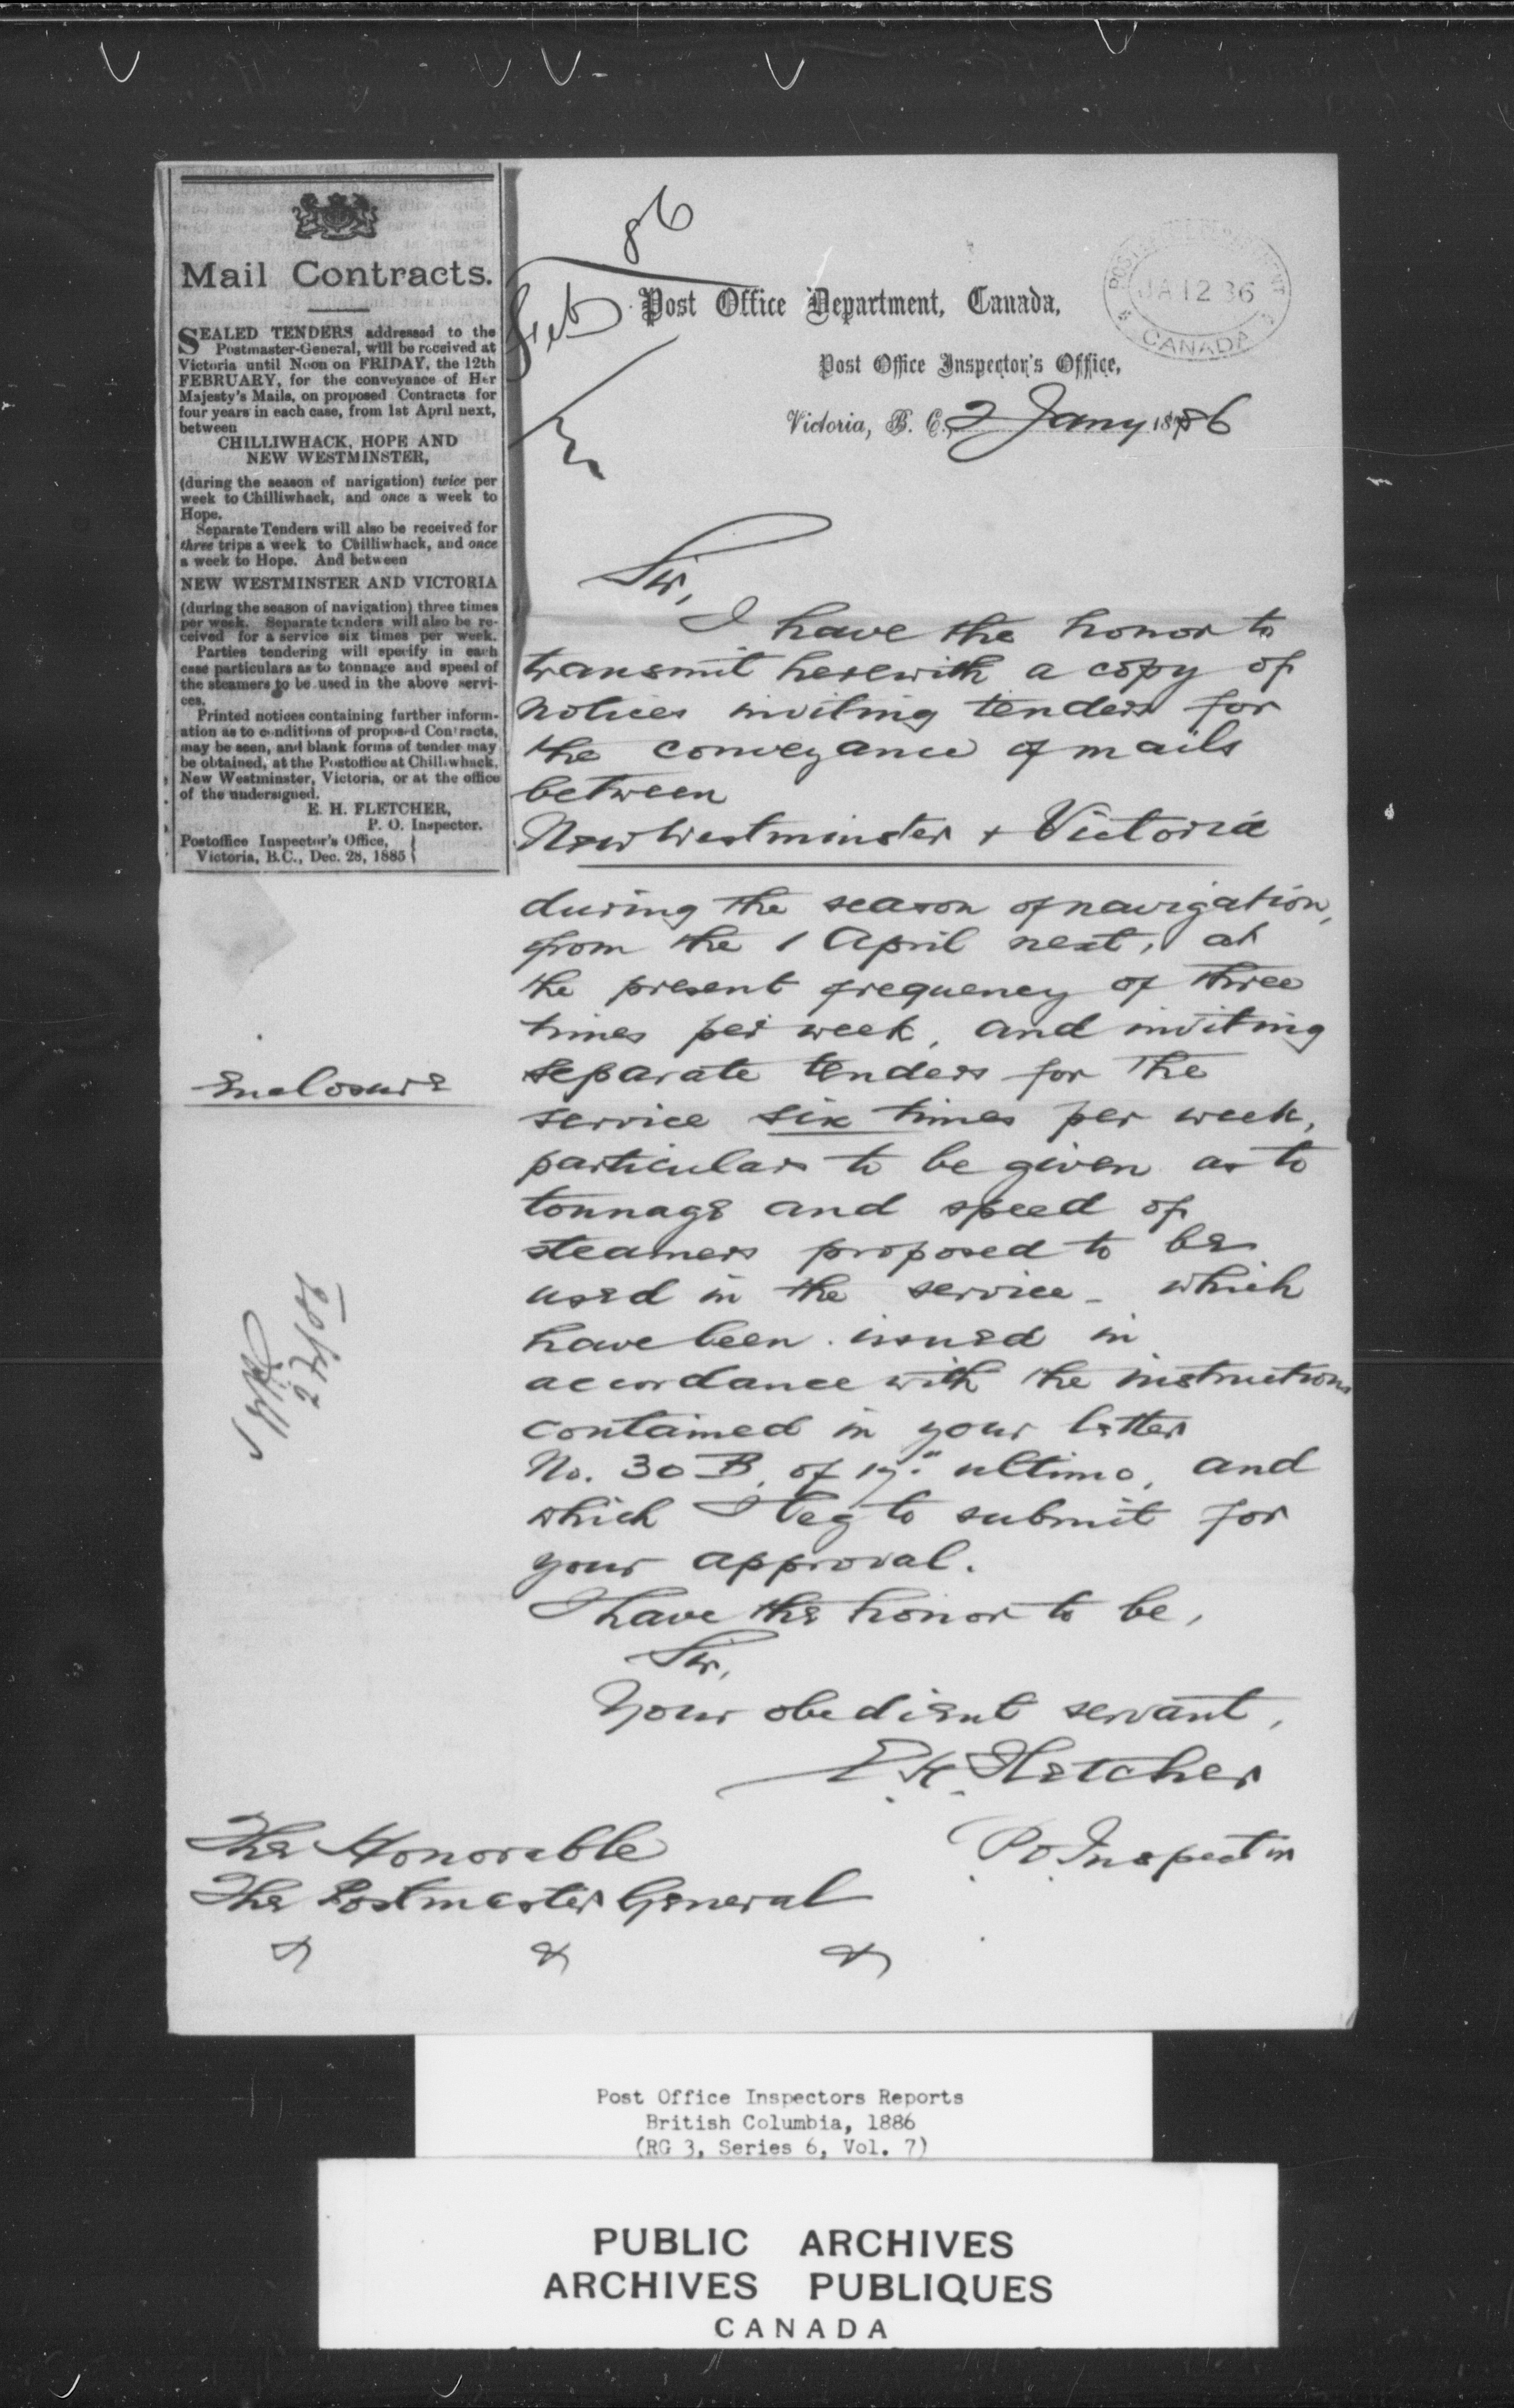 Mail Contracts.
SEALED TENDERS addressed to the
Postmaster-General, will be received at
Victoria until Noon on FRIDAY, the 12th
FEBRUARY, for the conveyance of Her
Majesty's Mails, on proposed Contracts for
four years in each case, from 1st April next,
between
CHILLIWHACK, HOPE AND
NEW WESTMINSTER,
(during the season of navigation) twice per
week to Chilliwhack, and once a week to
Hope.
Separate Tenders will also be received for
three trips a week to Chilliwhack, and once
a week to Hope. And between
NEW WESTMINSTER AND VICTORIA
(during the season of navigation) three times
per week. Separate tenders will also be re-
ceived for a service six times per week.
Parties tendering will specify in each
case particulars as to tonnage and speed of
the steamers to be used in the above servi-
ces.
Printed notices containing further inform-
ation as to conditions of proposed Contracts,
may be seen, and blank forms of tender may
be obtained, at the Postoffice at Chilliwhack,
New Westminster, Victoria, or at the office
of the undersigned.
E. H. FLETCHER,
P. O. Inspector.
Postoffice Inspector's Office,
Victoria, B.C., Dec. 28, 1885
86
Post Office Department, Canada,
JA 12 86
CANADA
Post Office Inspector's Office,
Victoria, B. C., 2 Jany 1886
Sir,
I have the honor to
transmit herewith a copy of
notices inviting tenders for
the conveyance of mails
between
New Westminster & Victoria
during the season of navigation,
from the 1 April next, at
the present frequency of three
times per week, and inviting
separate tenders for the
service six times per week,
particulars to be given as to
tonnage and speed of
steamers proposed to be
used in the service - which
have been issued in
accordance with the instructions
contained in your letter
No. 30 B, of 17" ultimo, and
which I beg to submit for
your approval.
I have the honor to be,
Sir,
Your obedient servant,
E. H. Fletcher
P. O. Inspector
Enclosure
The Honorable
The Postmaster General
& & &
Post Office Inspectors Reports
British Columbia, 1886
(RG 3, Series 6, Vol. 7)
PUBLIC ARCHIVES
ARCHIVES PUBLIQUES
CANADA